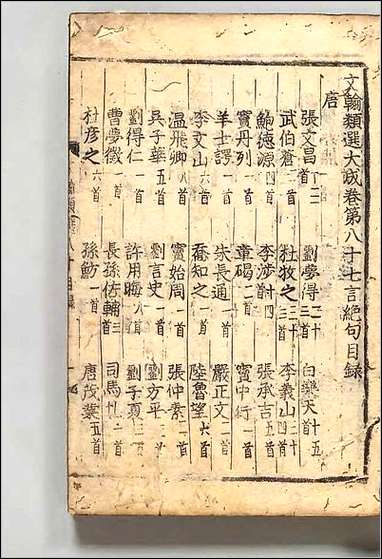 文翰類選大成卷第八十七言絕句目錄
唐
張文昌 劉夢得 二十三首 白樂天 廿五首
武伯蒼 二首 杜牧之 三首 李義山 四首
鮑德源 四首 李涉 廿四首 張承吉 五首
竇丹列 一首 章碣 二首 竇中行 一首
羊士諤 一首 朱長通 一首 嚴正文 二首
李文山 一首 喬知之 一首 陸魯望 六首
温飛卿 八首 竇始周 一首 張仲素 二首
吳子華 五首 劉言史 一首 劉方平 三首
劉得仁 一首 許用晦 八首 劉子夏 二首
曹夢徵 一首 長孫佐輔 三首 司馬札 二首
杜彦之 六首 孫魴 一首 唐茂業 五首